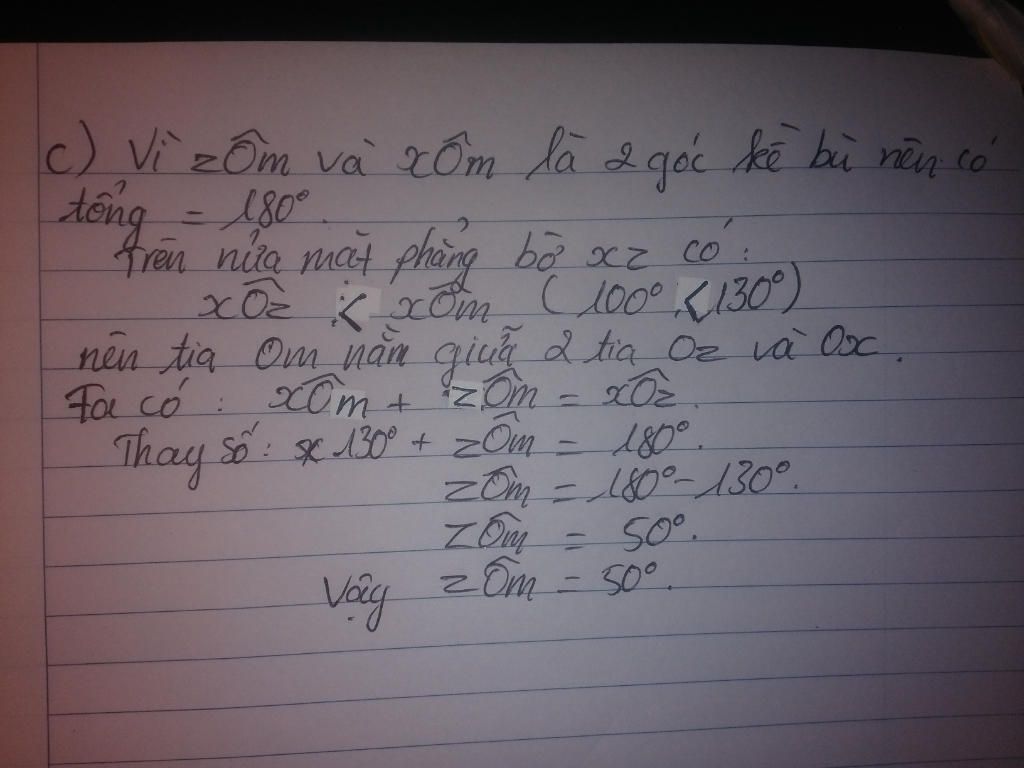 c) Vì zÔm và xÔm là 2 góc kề bù nên có
tổng = 180°.
Trên nửa mặt phẳng bờ xz có:
xÔz < xÔm (100° < 130°)
nên tia Om nằm giữa 2 tia Oz và Ox.
Ta có: xÔm + zÔm = xÔz.
Thay số: 130° + zÔm = 180°.
zÔm = 180° - 130°.
zÔm = 50°.
Vậy zÔm = 50°.